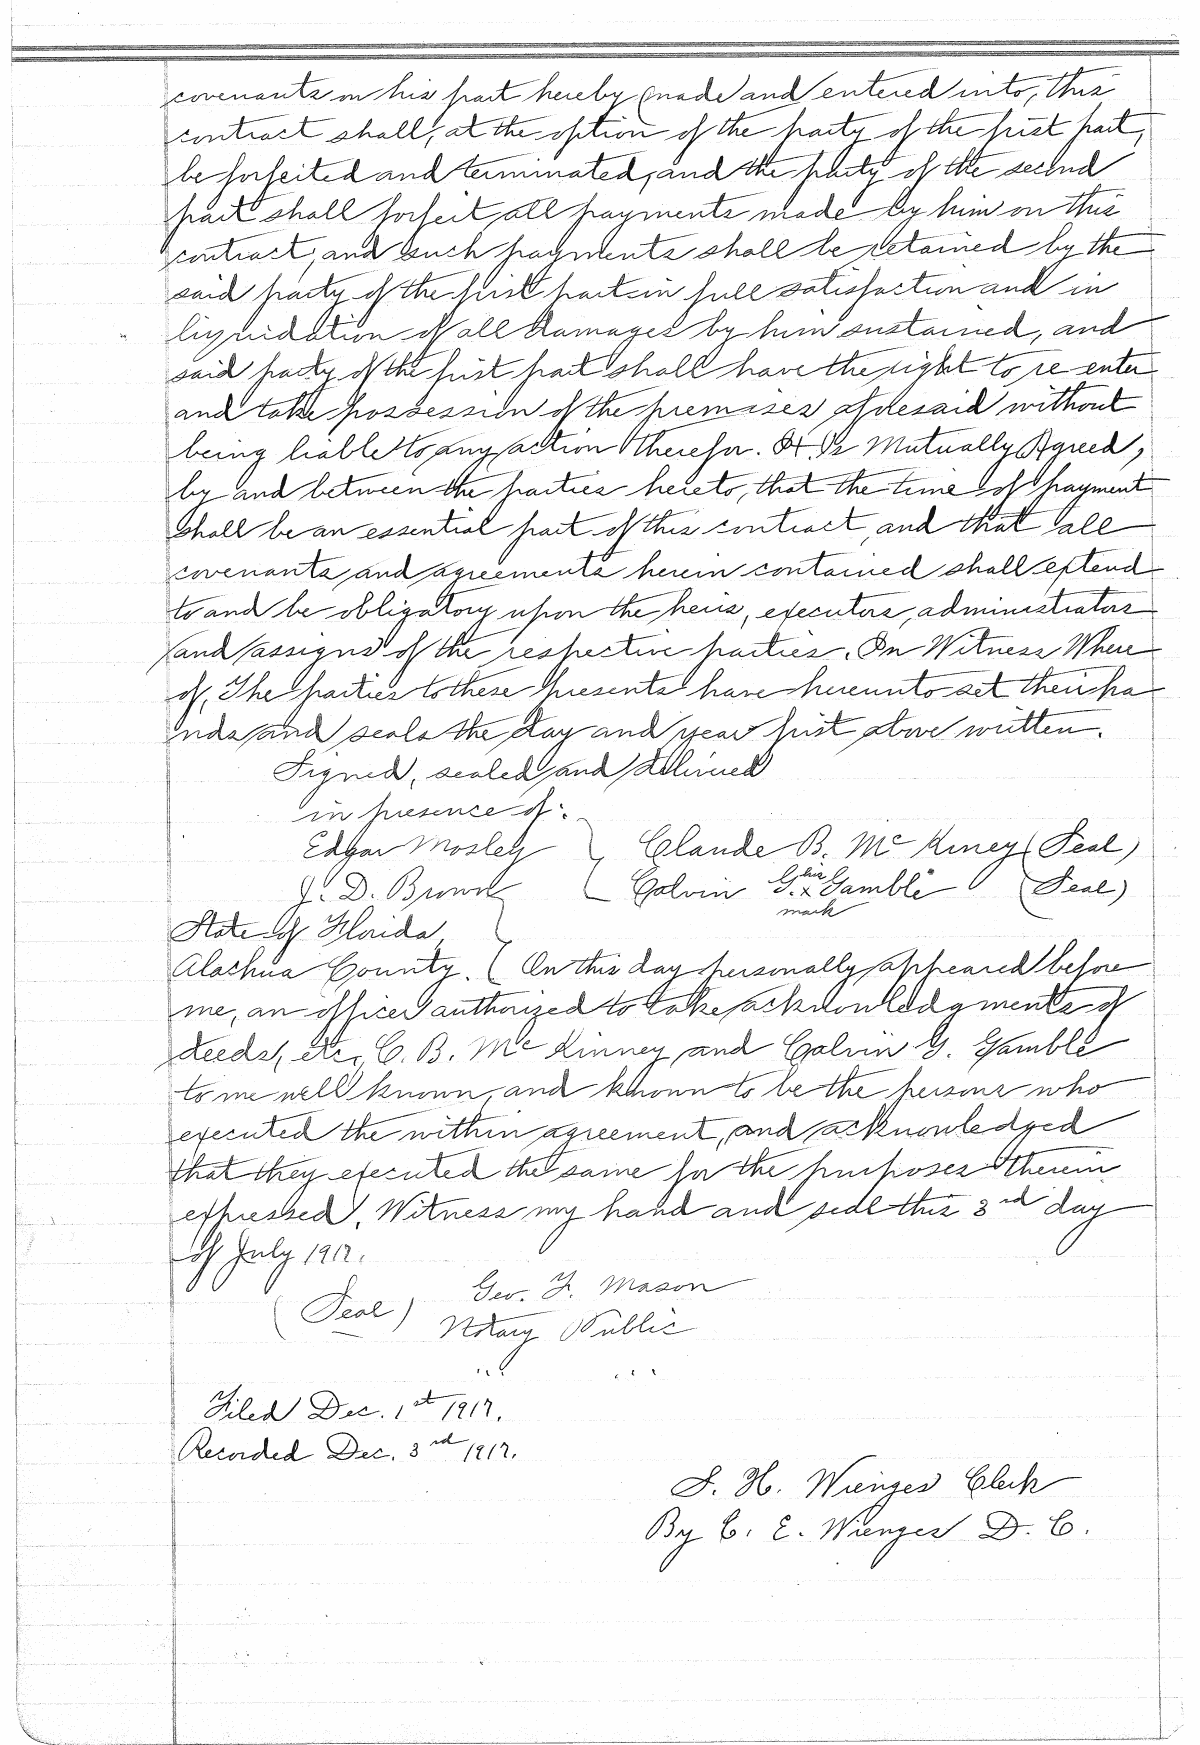 covenants on his part hereby made and entered into, this
contract shall, at the option of the party of the first part,
be forfeited and terminated, and the party of the second
part shall forfeit all payments made by him on this
contract, and such payments shall be retained by the
said party of the first part in full satisfaction and in
liquidation of all damages by him sustained, and
said party of the first part shall have the right to re enter
and take possession of the premises aforesaid without
being liable to any action therefor. It Is Mutually Agreed,
by and between the parties hereto, that the time of payment
shall be an essential part of this contract, and that all
covenants and agreements herein contained shall extend
to and be obligatory upon the heirs, executors, administrators
and assigns of the respective parties. In Witness Where
of, The parties to these presents have hereunto set their ha
nds and seals the day and year first above written.
Signed, sealed and delivered
in presence of:
Edgar Mosley } Claude B. McKiney (Seal)
J. D. Brown { Calvin G. his x mark Gamble (Seal)
State of Florida
Alachua County. ( On this day personally appeared before
me, an officer authorized to take acknowledgments of
deeds, etc, C. B. McKinney and Calvin G. Gamble
to me well known, and known to be the persons who
executed the within agreement, and acknowledged
that they executed the same for the purposes therein
expressed. Witness my hand and seal this 3rd day
of July 1917.
Geo. F. Mason
(Seal) Notary Public
Filed Dec. 1st 1917.
Recorded Dec. 3rd 1917.
S. H. Wienges Clerk
By C. E. Wienges D. C.